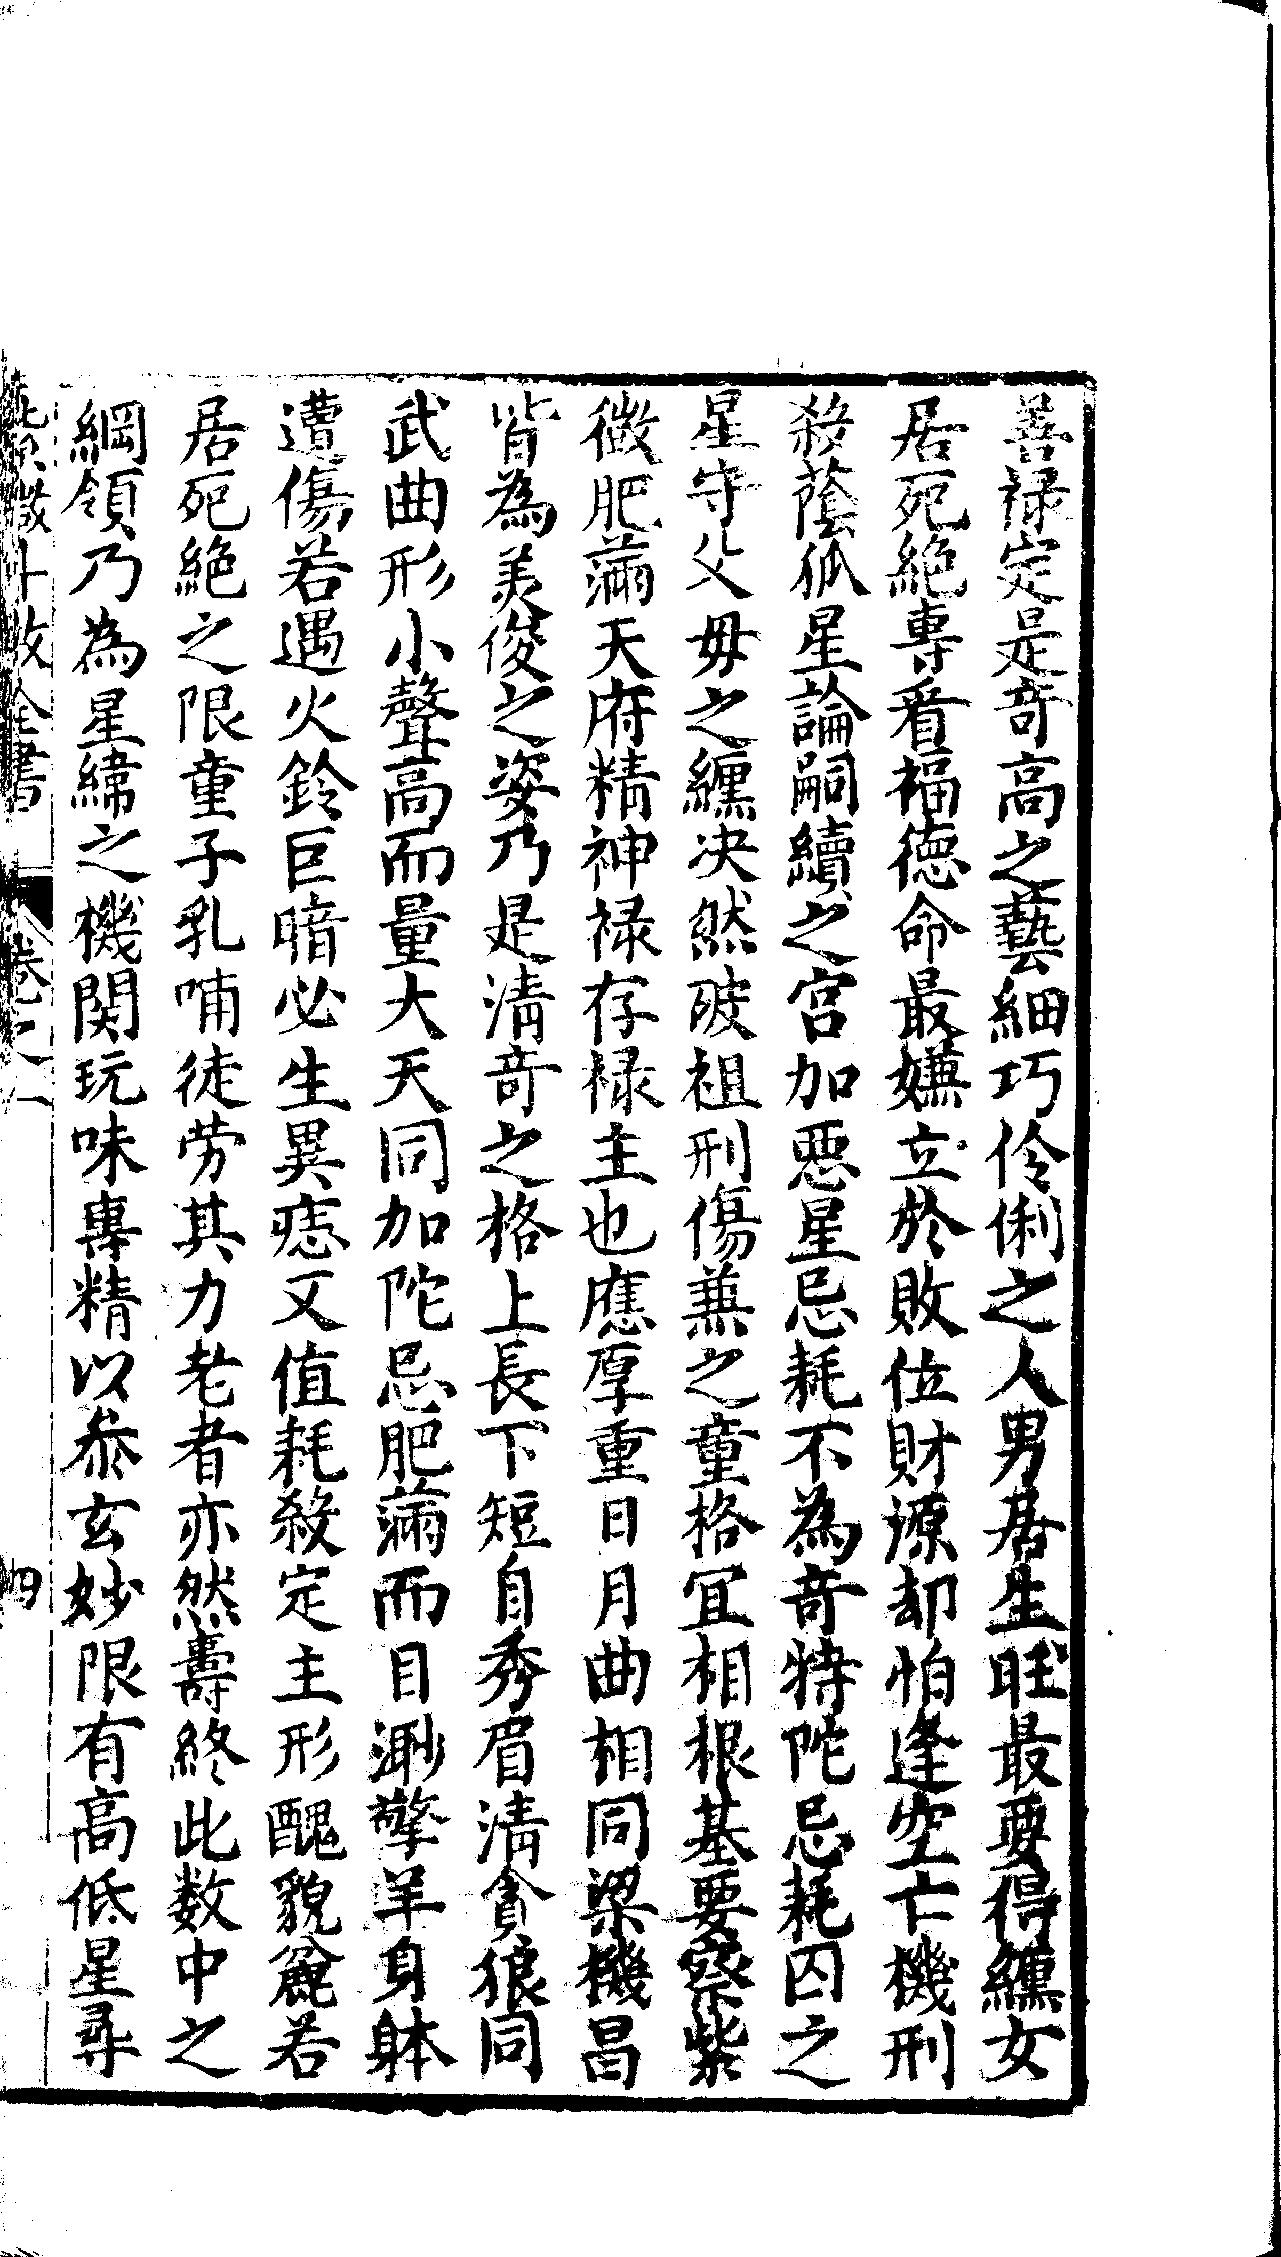 善禄定是竒髙之藝細巧伶俐之人男居生旺最要得纏女
居死絶專看福德命最嫌立於敗位財源却怕逢空亡機刑
殺蔭孤星論嗣續之宫加惡星忌耗不為竒特陀忌耗囚之
星守父毋之纏决然破祖刑傷兼之童格宜相根基要察紫
微肥滿天府精神禄存禄主也應厚重日月曲相同梁機昌
皆為羙俊之姿乃是清竒之格上長下短目秀眉清貪狼同
武曲形小聲髙而量大天同加陀忌肥滿而目渺擎羊身躰
遭傷若遇火鈴巨暗必生異痣又值耗殺定主形醜貌麄若
居死絶之限童子乳哺徒劳其力老者亦然壽終此数中之
綱領乃為星緯之機関玩味專精以叅玄妙限有髙低星尋
紫微斗数全書
卷之一
四